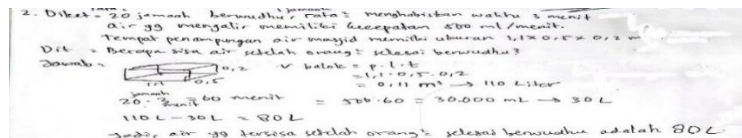 2. Diket = 20 jemaah berwudhu, rata² menghabiskan waktu 3 menit
1 jamaah
air yg mengalir memiliki kecepatan 500 ml/menit.
Tempat penampungan air masjid memiliki ukuran 1,1 x 0,5 x 0,2 m
Dit = Berapa sisa air setelah orang² selesai berwudhu?
Jawab = 0,2 V balok = p . l . t
= 1,1 . 0,5 . 0,2
1,1 0,5 = 0,11 m³ → 110 Liter
jamaah
20 . 3 menit = 60 menit = 500 . 60 = 30.000 mL → 30 L
110 L - 30 L = 80 L
Jadi, air yg tersisa setelah orang² selesai berwudhu adalah 80 L